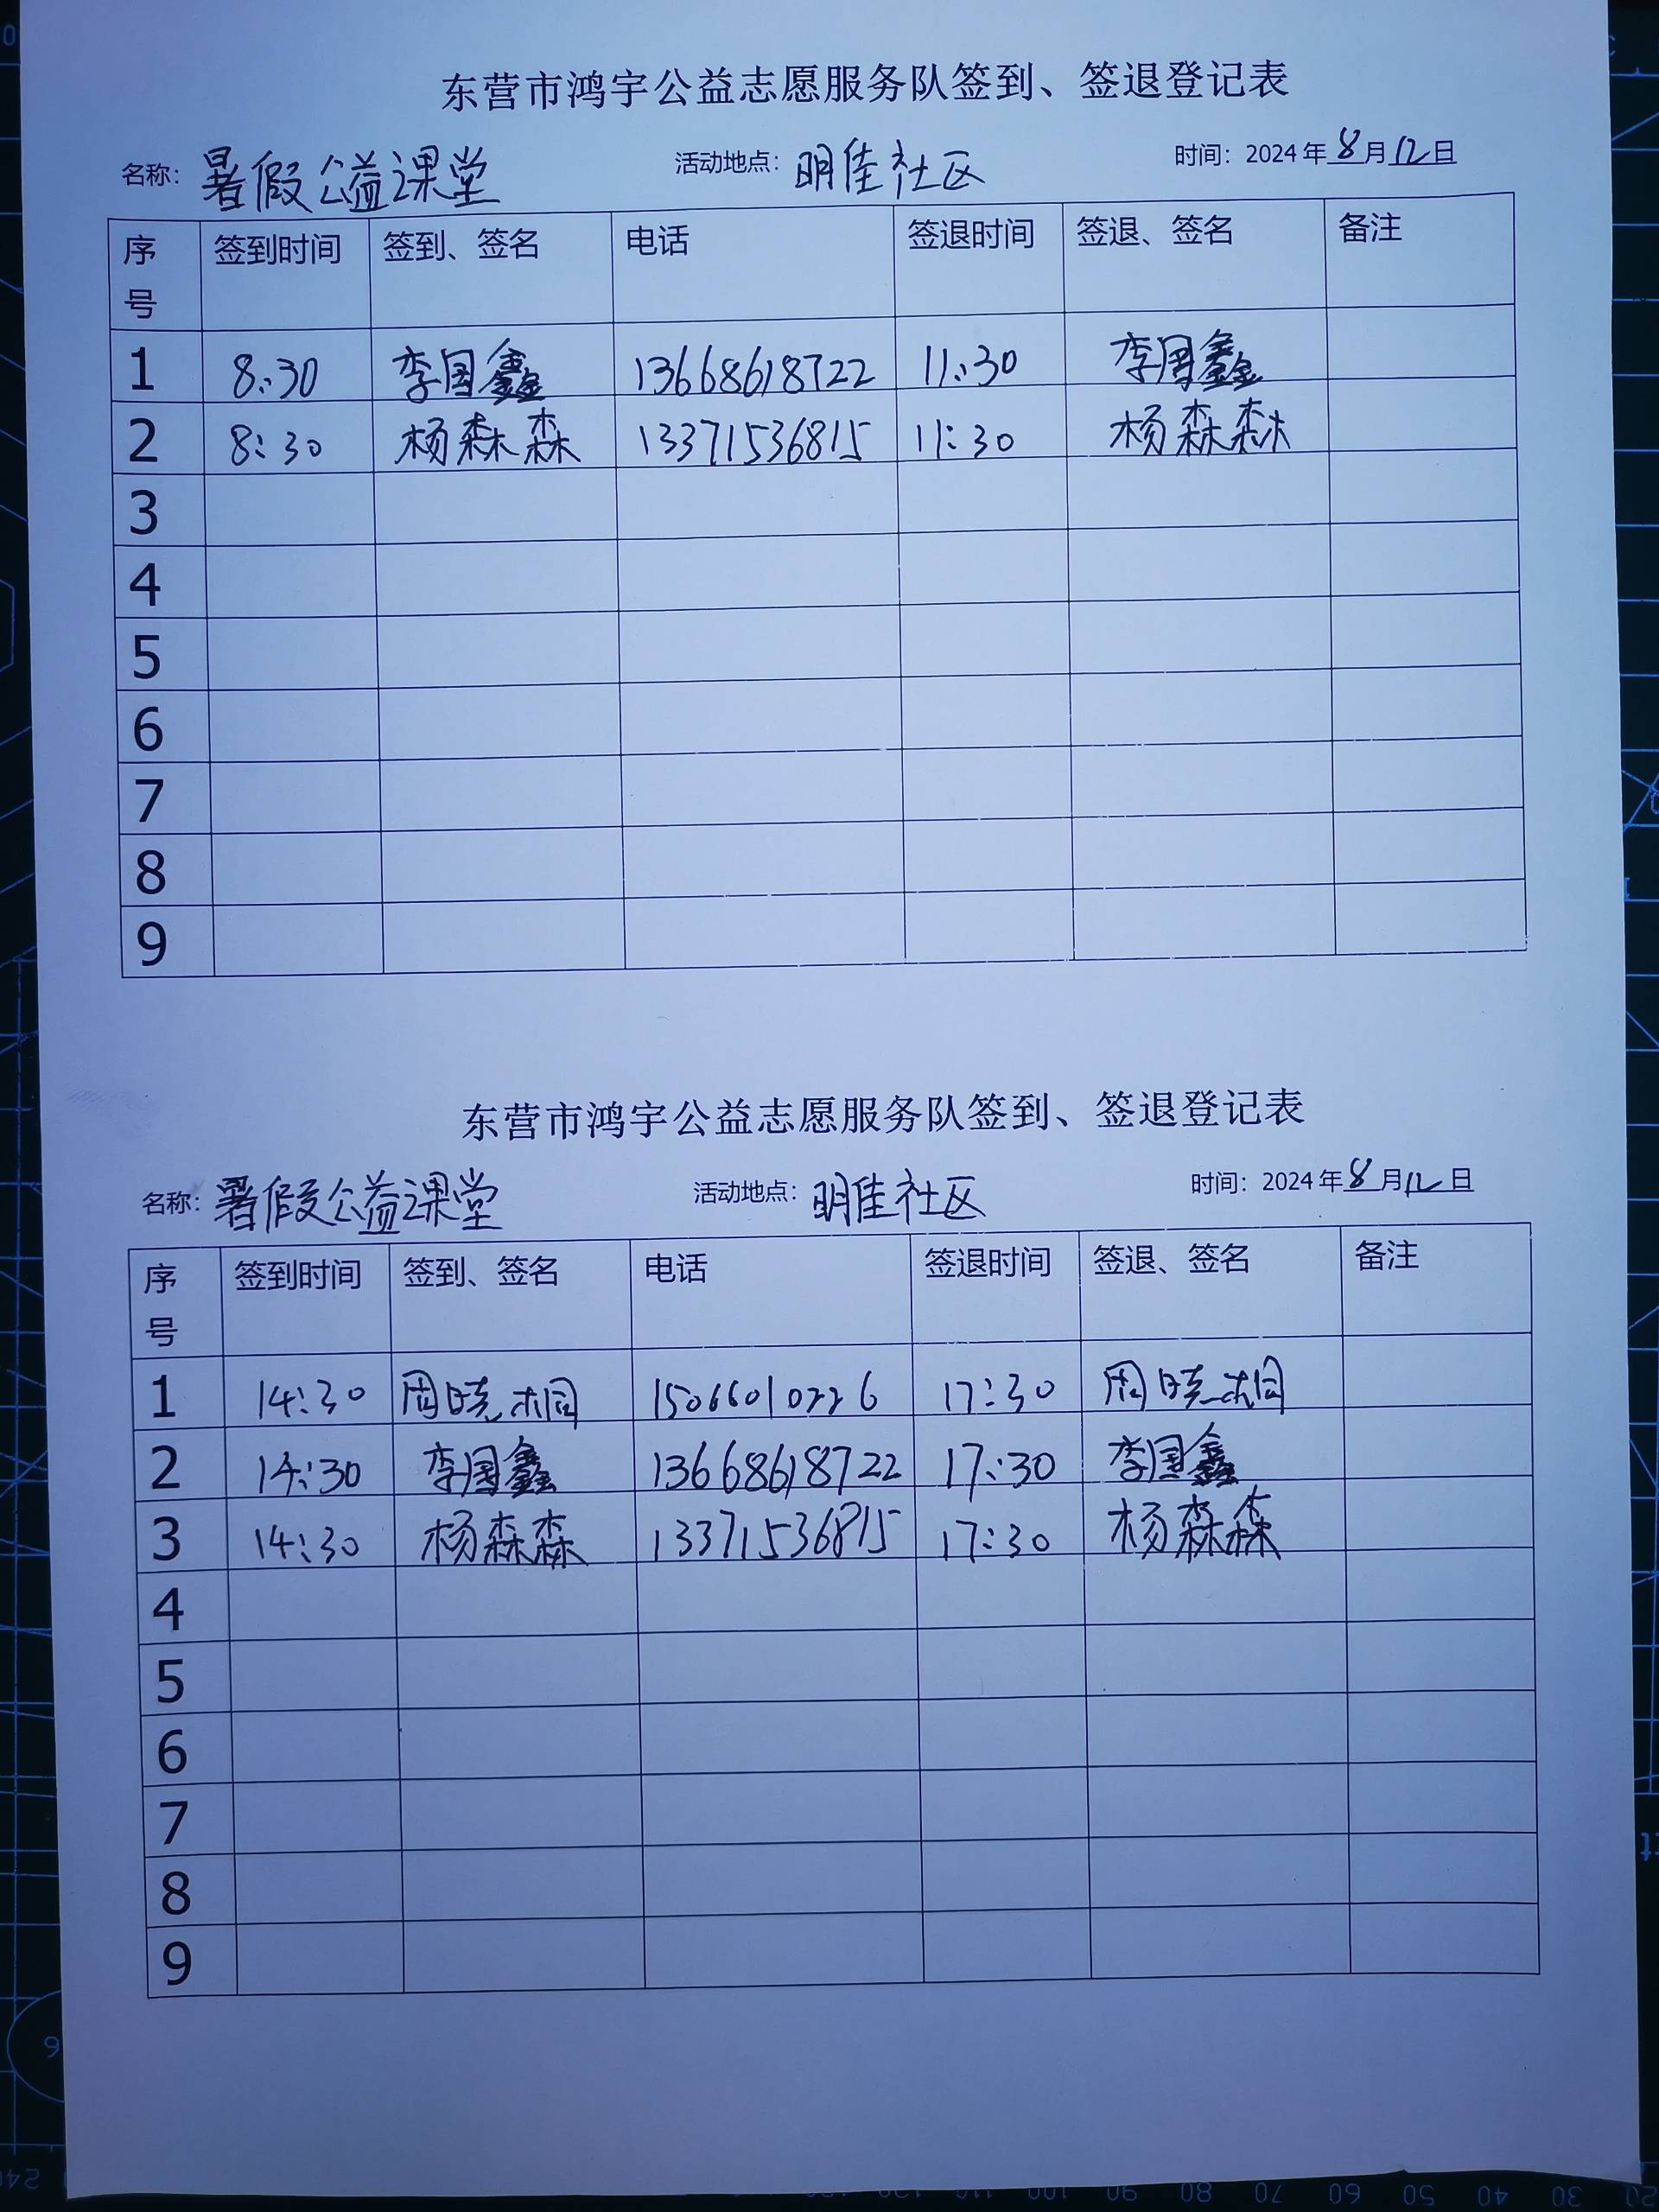 东营市鸿宇公益志愿服务队签到、签退登记表
名称：暑假公益课堂 活动地点：明佳社区 时间：2024年8月12日
序号 签到时间 签到、签名 电话 签退时间 签退、签名 备注
1 8:30 李国鑫 13668618722 11:30 李国鑫
2 8:30 杨森森 13371536815 11:30 杨森森
3
4
5
6
7
8
9
东营市鸿宇公益志愿服务队签到、签退登记表
名称：暑假公益课堂 活动地点：明佳社区 时间：2024年8月12日
序号 签到时间 签到、签名 电话 签退时间 签退、签名 备注
1 14:30 周晓桐 15066010226 17:30 周晓桐
2 14:30 李国鑫 13668618722 17:30 李国鑫
3 14:30 杨森森 13371536815 17:30 杨森森
4
5
6
7
8
9